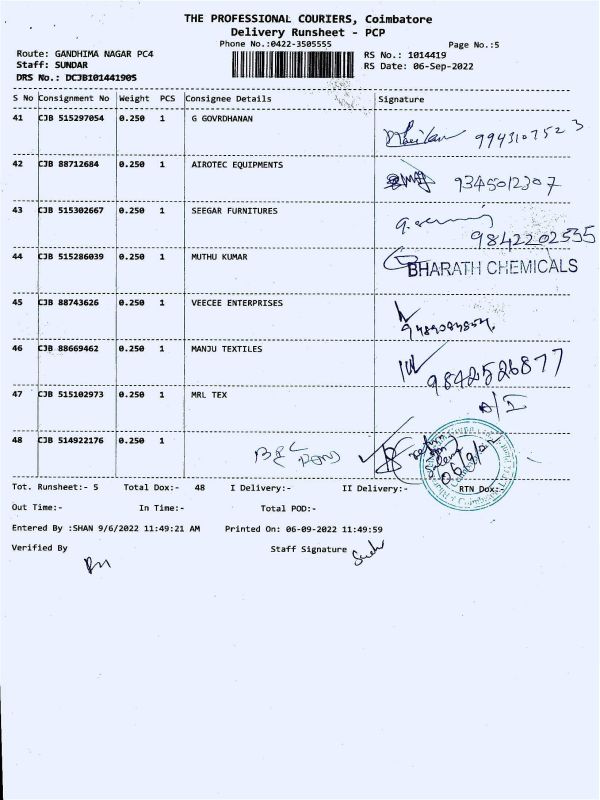 THE PROFESSIONAL COURIERS, Coimbatore
Delivery Runsheet - PCP
Phone No.:0422-3505555
Page No.:5
Route: GANDHIMA NAGAR PC4
RS No.: 1014419
Staff: SUNDAR
RS Date: 06-Sep-2022
DRS No.: DCJB101441905
S No Consignment No Weight PCS Consignee Details Signature
41 CJB 515297054 0.250 1 G GOVRDHANAN
9943107523
42 CJB 88712684 0.250 1 AIROTEC EQUIPMENTS
9345012307
43 CJB 515302667 0.250 1 SEEGAR FURNITURES
9842202555
44 CJB 515286039 0.250 1 MUTHU KUMAR
BHARATH CHEMICALS
45 CJB 88743626 0.250 1 VEECEE ENTERPRISES
46 CJB 88669462 0.250 1 MANJU TEXTILES
9842526877
47 CJB 515102973 0.250 1 MRL TEX
48 CJB 514922176 0.250 1
Tot. Runsheet:- 5 Total Dox:- 48 I Delivery:- II Delivery:- RTN Dox:-
Out Time:- In Time:- Total POD:-
Entered By :SHAN 9/6/2022 11:49:21 AM Printed On: 06-09-2022 11:49:59
Verified By Staff Signature